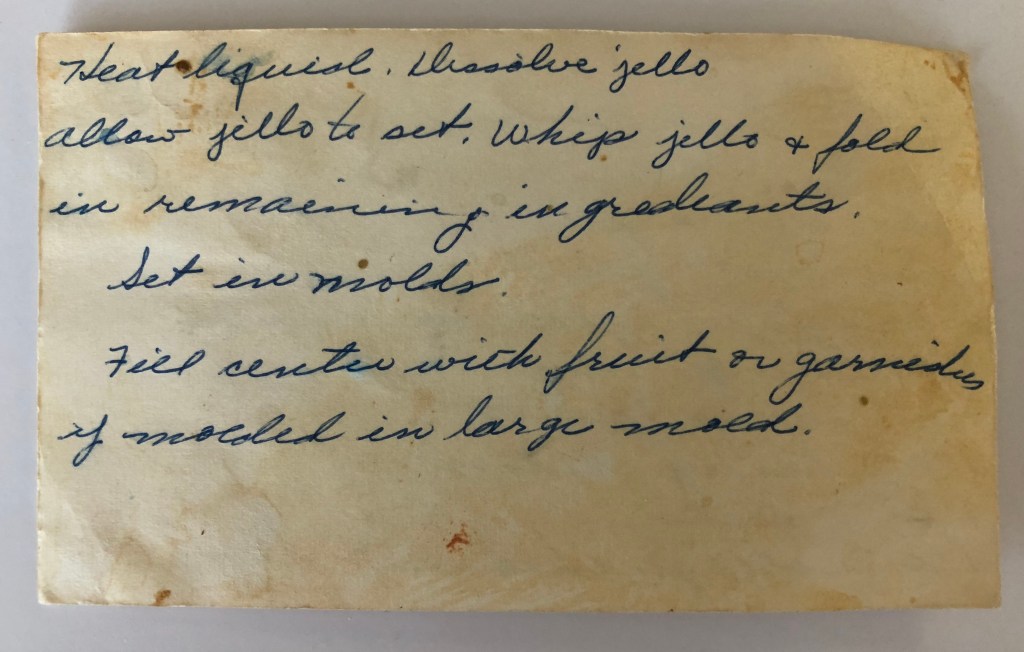 Heat liquid. Dissolve jello
allow jello to set. Whip jello & fold
in remaining ingrediants.
Set in molds.
Fill center with fruit or garnishes
if molded in large mold.